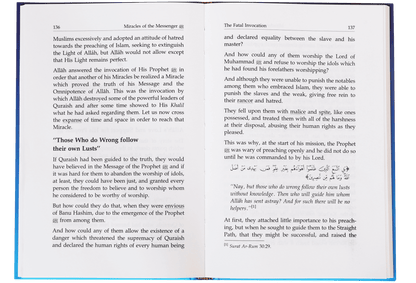 136 Miracles of the Messenger ﷺ
Muslims excessively and adopted an attitude of hatred
towards the preaching of Islam, seeking to extinguish
the Light of Allâh, but Allâh would not allow except
that His Light remains perfect.
Allâh answered the invocation of His Prophet ﷺ in
order that another of his Miracles be realized a Miracle
which proved the truth of his Message and the
Omnipotence of Allâh. This was the invocation by
which Allâh destroyed some of the powerful leaders of
Quraish and after some time showed to His Khalil
what he had asked regarding them. Let us now cross
the expense of time and space in order to reach that
Miracle.
"Those Who do Wrong follow
their own Lusts"
If Quraish had been guided to the truth, they would
have believed in the Message of the Prophet ﷺ and if
it was hard for them to abandon the worship of idols,
at least, they could have been just, and granted every
person the freedom to believe and to worship whom
he considered to be worthy of worship.
But how could they do that, when they were envious
of Banu Hashim, due to the emergence of the Prophet
ﷺ from among them.
And how could any of them allow the existence of a
danger which threatened the supremacy of Quraish
and declared the human rights of every human being
The Fatal Invocation 137
and declared equality between the slave and his
master?
And how could any of them worship the Lord of
Muhammad ﷺ and refuse to worship the idols which
he had found his forefathers worshipping?
And although they were unable to punish the notables
among them who embraced Islam, they were able to
punish the slaves and the weak, giving free rein to
their rancor and hatred.
They fell upon them with malice and spite, like ones
possessed, and treated them with all of the harshness
at their disposal, abusing their human rights as they
pleased.
This was why, at the start of his mission, the Prophet
ﷺ was wary of preaching openly and he did not do so
until he was commanded to by his Lord.
"Nay, but those who do wrong follow their own lusts
without knowledge. Then who will guide him whom
Allâh has sent astray? And for such there will be no
helpers."[1]
At first, they attached little importance to his preach-
ing, but when he sought to guide them to the Straight
Path, that they might be successful, and raised the
[1] Surat Ar-Rum 30:29.